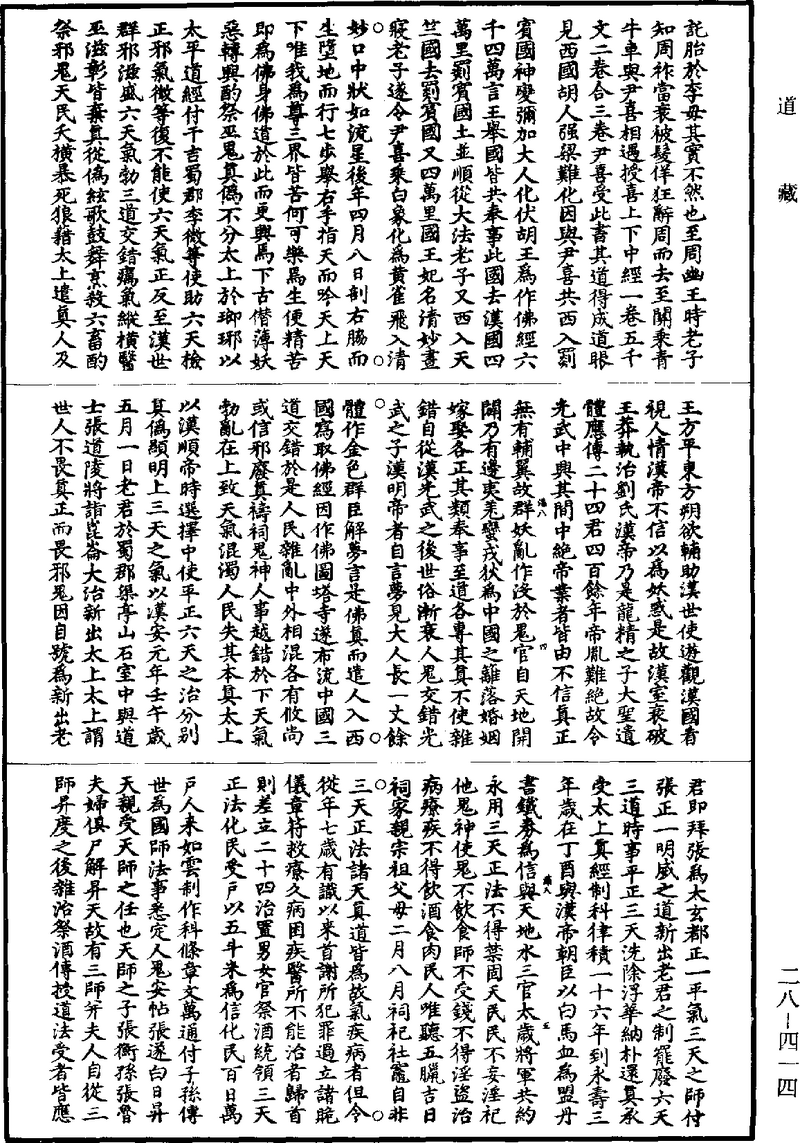 道藏
託胎於李母其實不然也至周幽王時老子
知周祚當衰被髮佯狂辭周而去至關乘青
牛車與尹喜相遇授喜上下中經一卷五千
文二卷合三卷尹喜受此書其道得成道眼
見西國胡人强梁難化因與尹喜共西入罽
賓國神變彌加大人化伏胡王為作佛經六
千四萬言王舉國皆共奉事此國去漢國四
萬里罽賓國土並順從大法老子又西入天
竺國去罽賓國又四萬里國王妃名清妙晝
寢老子遂令尹喜乘白象化為黄雀飛入清
妙口中狀如流星後年四月八日剖右脇而
生墮地而行七步舉右手指天而吟天上天
下唯我為尊三界皆苦何可樂焉生便精苦
即為佛身佛道於此而更興焉下古僭薄妖
惡轉興酌祭巫鬼真偽不分太上於瑯琊以
太平道經付干吉蜀郡李微等使助六天檢
正邪氣微等復不能使六天氣正反至漢世
群邪滋盛六天氣勃三道交錯癘氣縱橫醫
巫滋彰皆棄真從偽絃歌鼓舞烹殺六畜酌
祭邪鬼天民夭橫暴死狼藉太上遣真人及
王方平東方朔欲輔助漢世使遊觀漢國看
視人情漢帝不信以為妖惑是故漢室衰破
王莽執治劉氏漢帝乃是龍精之子大聖遺
體應傳二十四君四百餘年帝胤難絶故令
光武中興其間中絶帝業者皆由不信真正
無有輔翼故群妖亂作没於鬼官自天地開
闢乃有邊夷羌蠻戎狄為中國之籬落婚姻
嫁娶各正其類奉事至道各專其真不使雜
錯自從漢光武之後世俗漸衰人鬼交錯光
武之子漢明帝者自言夢見大人長一丈餘
體作金色群臣解夢言是佛真而遣人入西
國寫取佛經因作佛圖塔寺遂布流中國三
道交錯於是人民雜亂中外相混各有攸尚
或信邪廢真禱祠鬼神人事越錯於下天氣
勃亂在上致天氣混濁人民失其本真太上
以漢順帝時選擇中使平正六天之治分别
真偽顯明上三天之氣以漢安元年壬午歲
五月一日老君於蜀郡渠亭山石室中與道
士張道陵將詣崑崙大治新出太上太上謂
世人不畏真正而畏邪鬼因自號為新出老
君即拜張為太玄都正一平氣三天之師付
張正一明威之道新出老君之制罷廢六天
三道時事平正三天洗除浮華納朴還真承
受太上真經制科律積一十六年到永壽三
年歲在丁酉與漢帝朝臣以白馬血為盟丹
書鐵券為信與天地水三官太歲將軍共約
永用三天正法不得禁固天民民不妄淫祀
他鬼神使鬼不飲食師不受錢不得淫盜治
病療疾不得飲酒食肉民人唯聽五臘吉日
祠家親宗祖父母二月八月祠祀社竈自非
三天正法諸天真道皆為故氣疾病者但令
從年七歲有識以來首謝所犯罪過立諸䤈
儀章符救療久病困疾醫所不能治者歸首
則差立二十四治置男女官祭酒統領三天
正法化民受户以五斗米為信化民百日萬
户人來如雲制作科條章文萬通付子孫傳
世為國師法事悉定人鬼安帖張遂白日昇
天親受天師之任也天師之子張衡孫張魯
夫婦俱尸解昇天故有三師并夫人自從三
師昇度之後雜治祭酒傳授道法受者皆應
二八—四一四